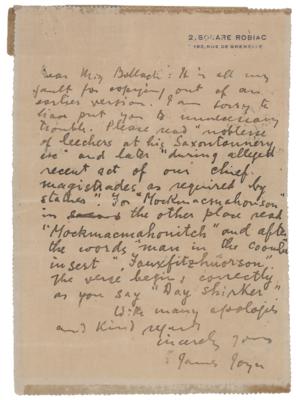 2, SQUARE ROBIAC
192, RUE DE GRENELLE
Dear Miss Bollach: It is all my
fault for copying out of an
earlier version. I am sorry to
have put you to unnecessary
trouble. Please read "noblesse
of leechers at his Saxontannery
and later "during alleged
recent act of our chief
magistrades as required by
statues". For "Mockmacmahonson"
in the other place read
"Mockmacmahonitch" and after
the words "man in the coombe
insert ", Fauxfitzhuorson".
The verse begins correctly
as you say "Day shirker"
With many apologies
and kind regards
sincerely yours
James Joyce